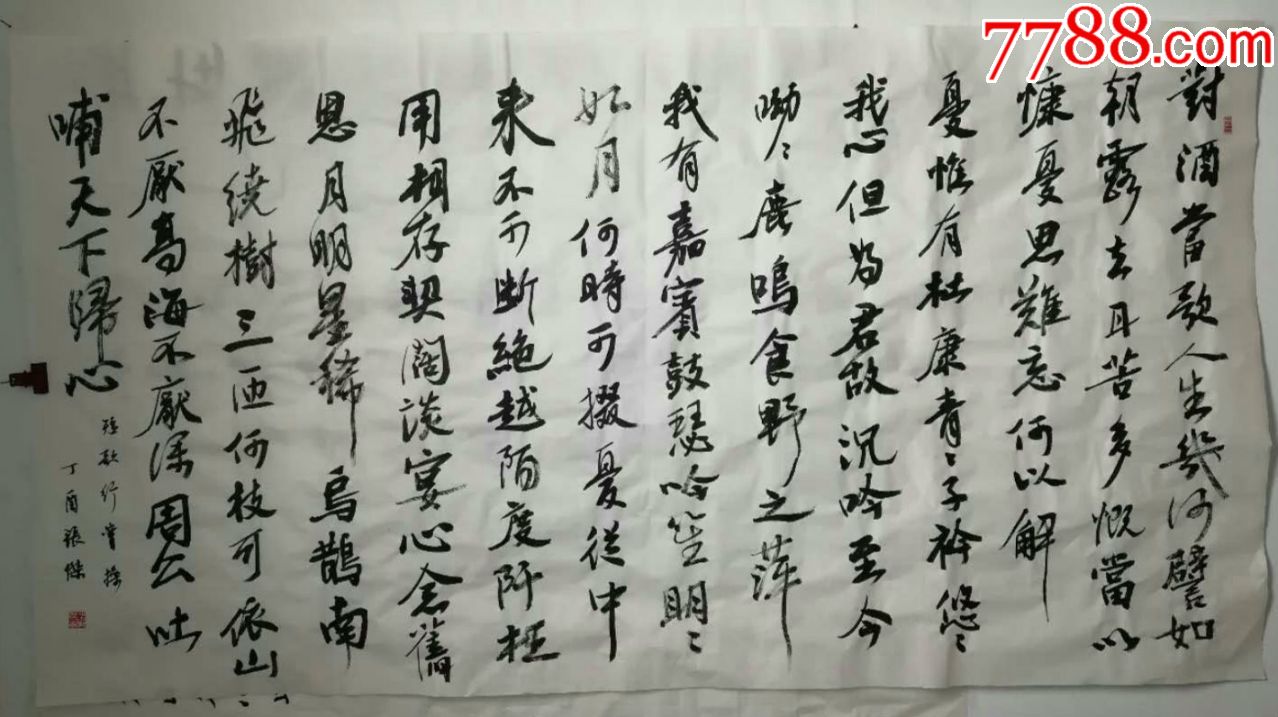 7788.com
對酒當歌人生幾何譬如
朝露去日苦多慨當以
慷憂思難忘何以解
憂惟有杜康青〻子衿悠〻
我心但為君故沉吟至今
呦〻鹿鳴食野之萍
我有嘉賓鼓瑟吹笙明〻
如月何時可掇憂從中
來不可斷絕越陌度阡枉
用相存契闊談宴心念舊
恩月明星稀烏鵲南
飛繞樹三匝何枝可依山
不厭高海不厭深周公吐
哺天下歸心
短歌行曹操
丁酉張傑